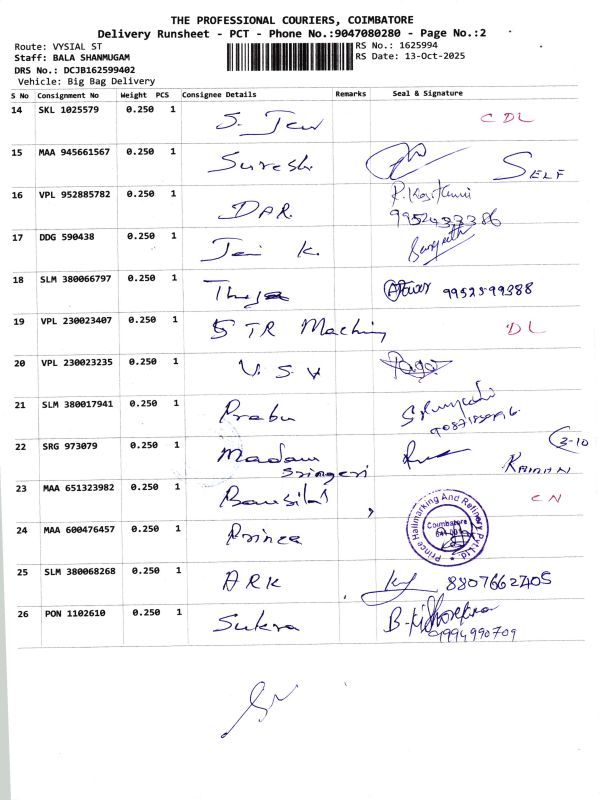 THE PROFESSIONAL COURIERS, COIMBATORE
Delivery Runsheet - PCT - Phone No.:9047080280 - Page No.:2
Route: VYSIAL ST RS No.: 1625994
Staff: BALA SHANMUGAM RS Date: 13-Oct-2025
DRS No.: DCJB162599402
Vehicle: Big Bag Delivery
S No Consignment No Weight PCS Consignee Details Remarks Seal & Signature
14 SKL 1025579 0.250 1 S. Jew CDL
15 MAA 945661567 0.250 1 Suresh SELF
16 VPL 952885782 0.250 1 DAR.
17 DDG 590438 0.250 1 Jai K. Sangeeth
18 SLM 380066797 0.250 1 9952599388
19 VPL 230023407 0.250 1 5 TR Machinj DL
20 VPL 230023235 0.250 1 V. S. V
21 SLM 380017941 0.250 1 Prabu
22 SRG 973079 0.250 1 Madam Sringeri 3-10
23 MAA 651323982 0.250 1 Bansilal CN
24 MAA 600476457 0.250 1 Prince Prince Hallmarking And Refinery Pvt Ltd. Coimbatore
25 SLM 380068268 0.250 1 ARK 8807662705
26 PON 1102610 0.250 1 Sukra B. Kishorekna
9994990709